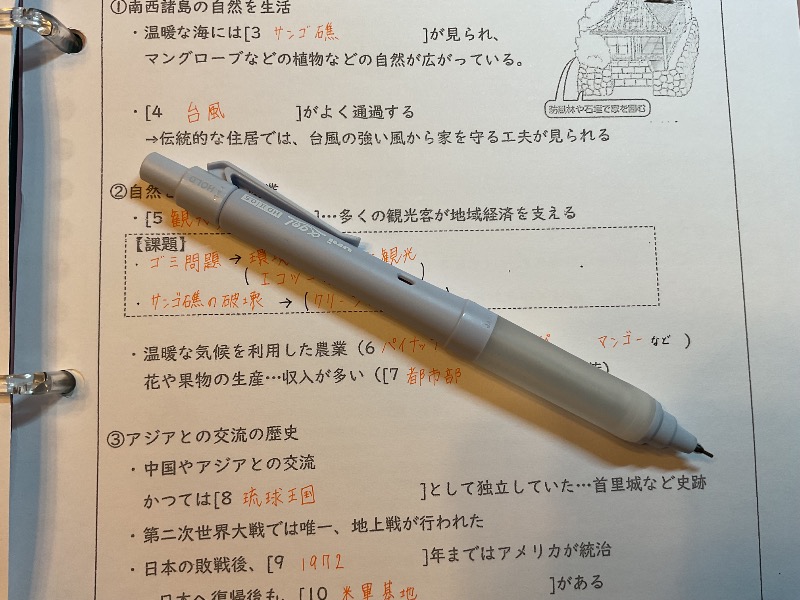 ①南西諸島の自然を生活
・温暖な海には[3 サンゴ礁 ]が見られ、
マングローブなどの植物などの自然が広がっている。
防風林や石垣で家を囲む
・[4 台風 ]がよく通過する
→伝統的な住居では、台風の強い風から家を守る工夫が見られる
②自然
・[5 観 ]…多くの観光客が地域経済を支える
【課題】
・ゴミ問題 → 環 観光
(エコツ )
・サンゴ礁の破壊 → (グリーン
・温暖な気候を利用した農業(6 パイナッ マンゴー など )
花や果物の生産…収入が多い([7 都市部
③アジアとの交流の歴史
・中国やアジアとの交流
かつては[8 琉球王国 ]として独立していた…首里城など史跡
・第二次世界大戦では唯一、地上戦が行われた
・日本の敗戦後、[9 1972 ]年まではアメリカが統治
日本へ復帰後も、[10 米軍基地 ]がある
uni αgel